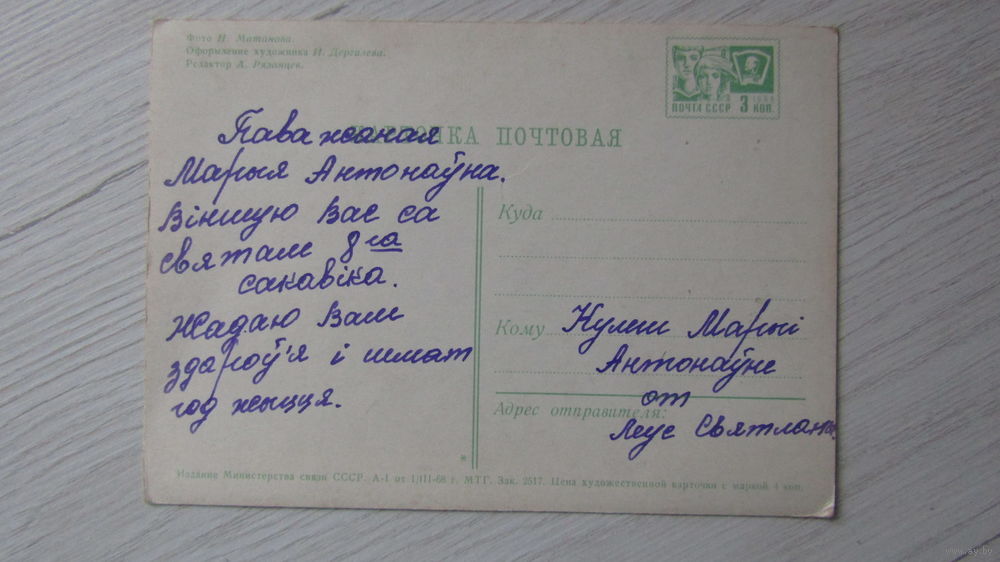 Фото Н. Матанова.
Оформление художника И. Дергилева.
Редактор А. Рязанцев.
ПОЧТА СССР 3 КОП.
1966
КАРТОЧКА ПОЧТОВАЯ
Паважаная
Марыя Антонаўна.
Віншую Вас са
святам 8га
сакавіка.
Жадаю Вам
здароў'я і шмат
год жыцця.
Куда
Кому Кулеш Марыі
Антонаўне
от
Адрес отправителя:
Леус Святланы
Издание Министерства связи СССР. А-1 от 1/III-68 г. МТГ. Зак. 2517. Цена художественной карточки с маркой 4 коп.
www.ay.by